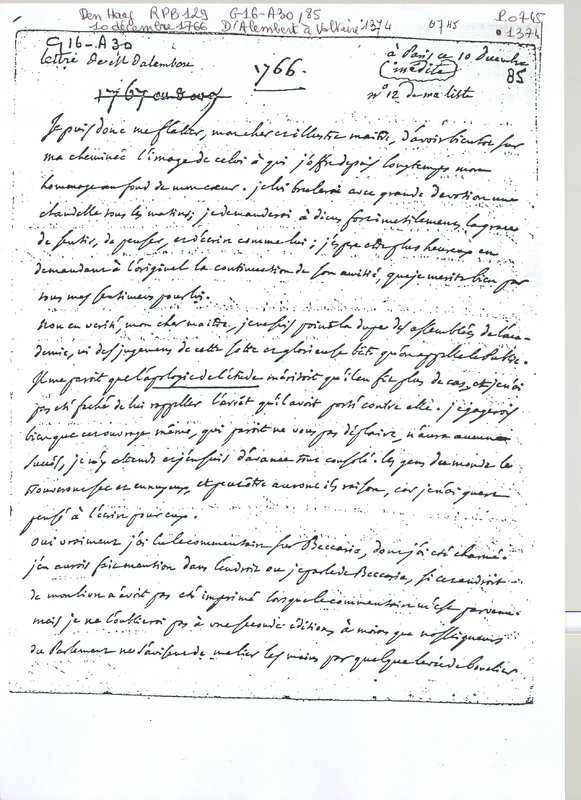 Den Haag RPB 129 G16-A30, 85 P.0745
10 décembre 1766 D'Alembert à Voltaire 1374 0745 • 1374
G16-A30 à Paris ce 10 Decembre
lettre de M. Dalembert 1766. (inédite) 85
1767 n° 12 de ma liste
Je puis donc me flatter, mon cher et illustre maitre, d'avoir bientot sur
ma cheminée l'image de celui à qui j'offre depuis longtemps mon
hommage au fond de mon cœur. je lui brulerai avec grande devotion une
chandelle tous les matins; je demanderai à dieu fort inutilement la grace
de sentir, de penser, et d'écrire comme lui; j'espere etre plus heureux en
demandant à l'original la continuation de son amitié, que je merite bien par
tous mes sentimens pour lui.
Non en verité, mon cher maitre, je ne suis point la dupe des assemblées de l'aca-
demie, ni des jugemens de cette sotte et glorieuse bête qu'on appelle le Public.
Il me paroit que l'apologie de l'étude méritoit qu'il en fit plus de cas, et je n'ai
pas été faché de lui rappeller l'arrêt qu'il avoit porté contre elle. je gagerois
bien que cet ouvrage même, qui paroit ne vous pas déplaire, n'aura aucun
succès, je m'y attends et j'en suis d'avance tout consolé. les gens du monde le
trouveront sec et ennuyeux, et peut être auront ils raison, car je n'ai guere
pensé à l'écrire pour eux.
Oui vraiment j'ai lu le commentaire sur Beccaria, dont j'ai été charmé.
j'en aurois fait mention dans l'endroit ou je parle de Beccaria, si cet endroit
de mon livre n'avoit pas eté imprimé lorsque le commentaire m'est parvenu.
mais je ne l'oublierai pas à une seconde édition, à moins que nosseigneurs
du Parlement ne s'avisent de me lier les mains par quelque levée de bouclier